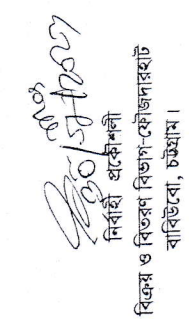 ৩০/১০/২০২৩
নির্বাহী প্রকৌশলী
বিক্রয় ও বিতরণ বিভাগ-ফৌজদারহাট
বাবিউবো, চট্টগ্রাম।